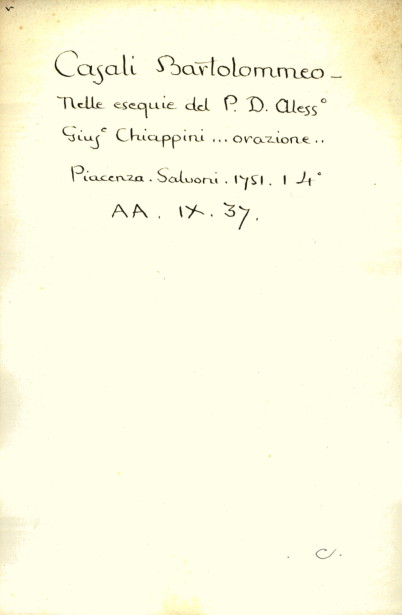 Casali Bartolommeo –
Nelle esequie del P. D. Aless°
Gius^e Chiappini ... orazione ..
Piacenza . Salvoni . 1751 . 1 4°
AA . IX . 37 .
C .